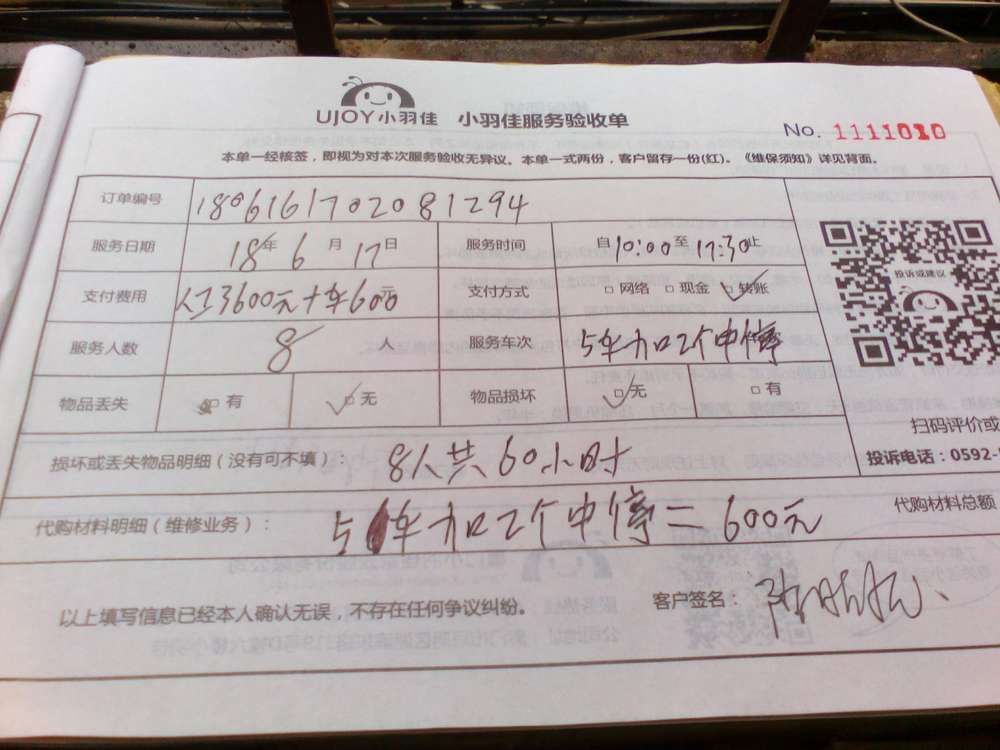 UJOY小羽佳 小羽佳服务验收单
No. 1111010
本单一经核签，即视为对本次服务验收无异议。本单一式两份，客户留存一份(红)。《维保须知》详见背面。
订单编号 180616170208 1294
服务日期 18年 6 月 17日 服务时间 自10:00至17:30止
支付费用 人工3600元+车600元 支付方式 □网络 □现金 ☑转账
服务人数 8 人 服务车次 5车加2个中停
物品丢失 □有 ☑无 物品损坏 ☑无 □有
投诉或建议
扫码评价或
投诉电话：0592-
损坏或丢失物品明细（没有可不填）： 8人共60小时
代购材料明细（维修业务）： 5车加2个中停=600元
代购材料总额
以上填写信息已经本人确认无误，不存在任何争议纠纷。
客户签名：